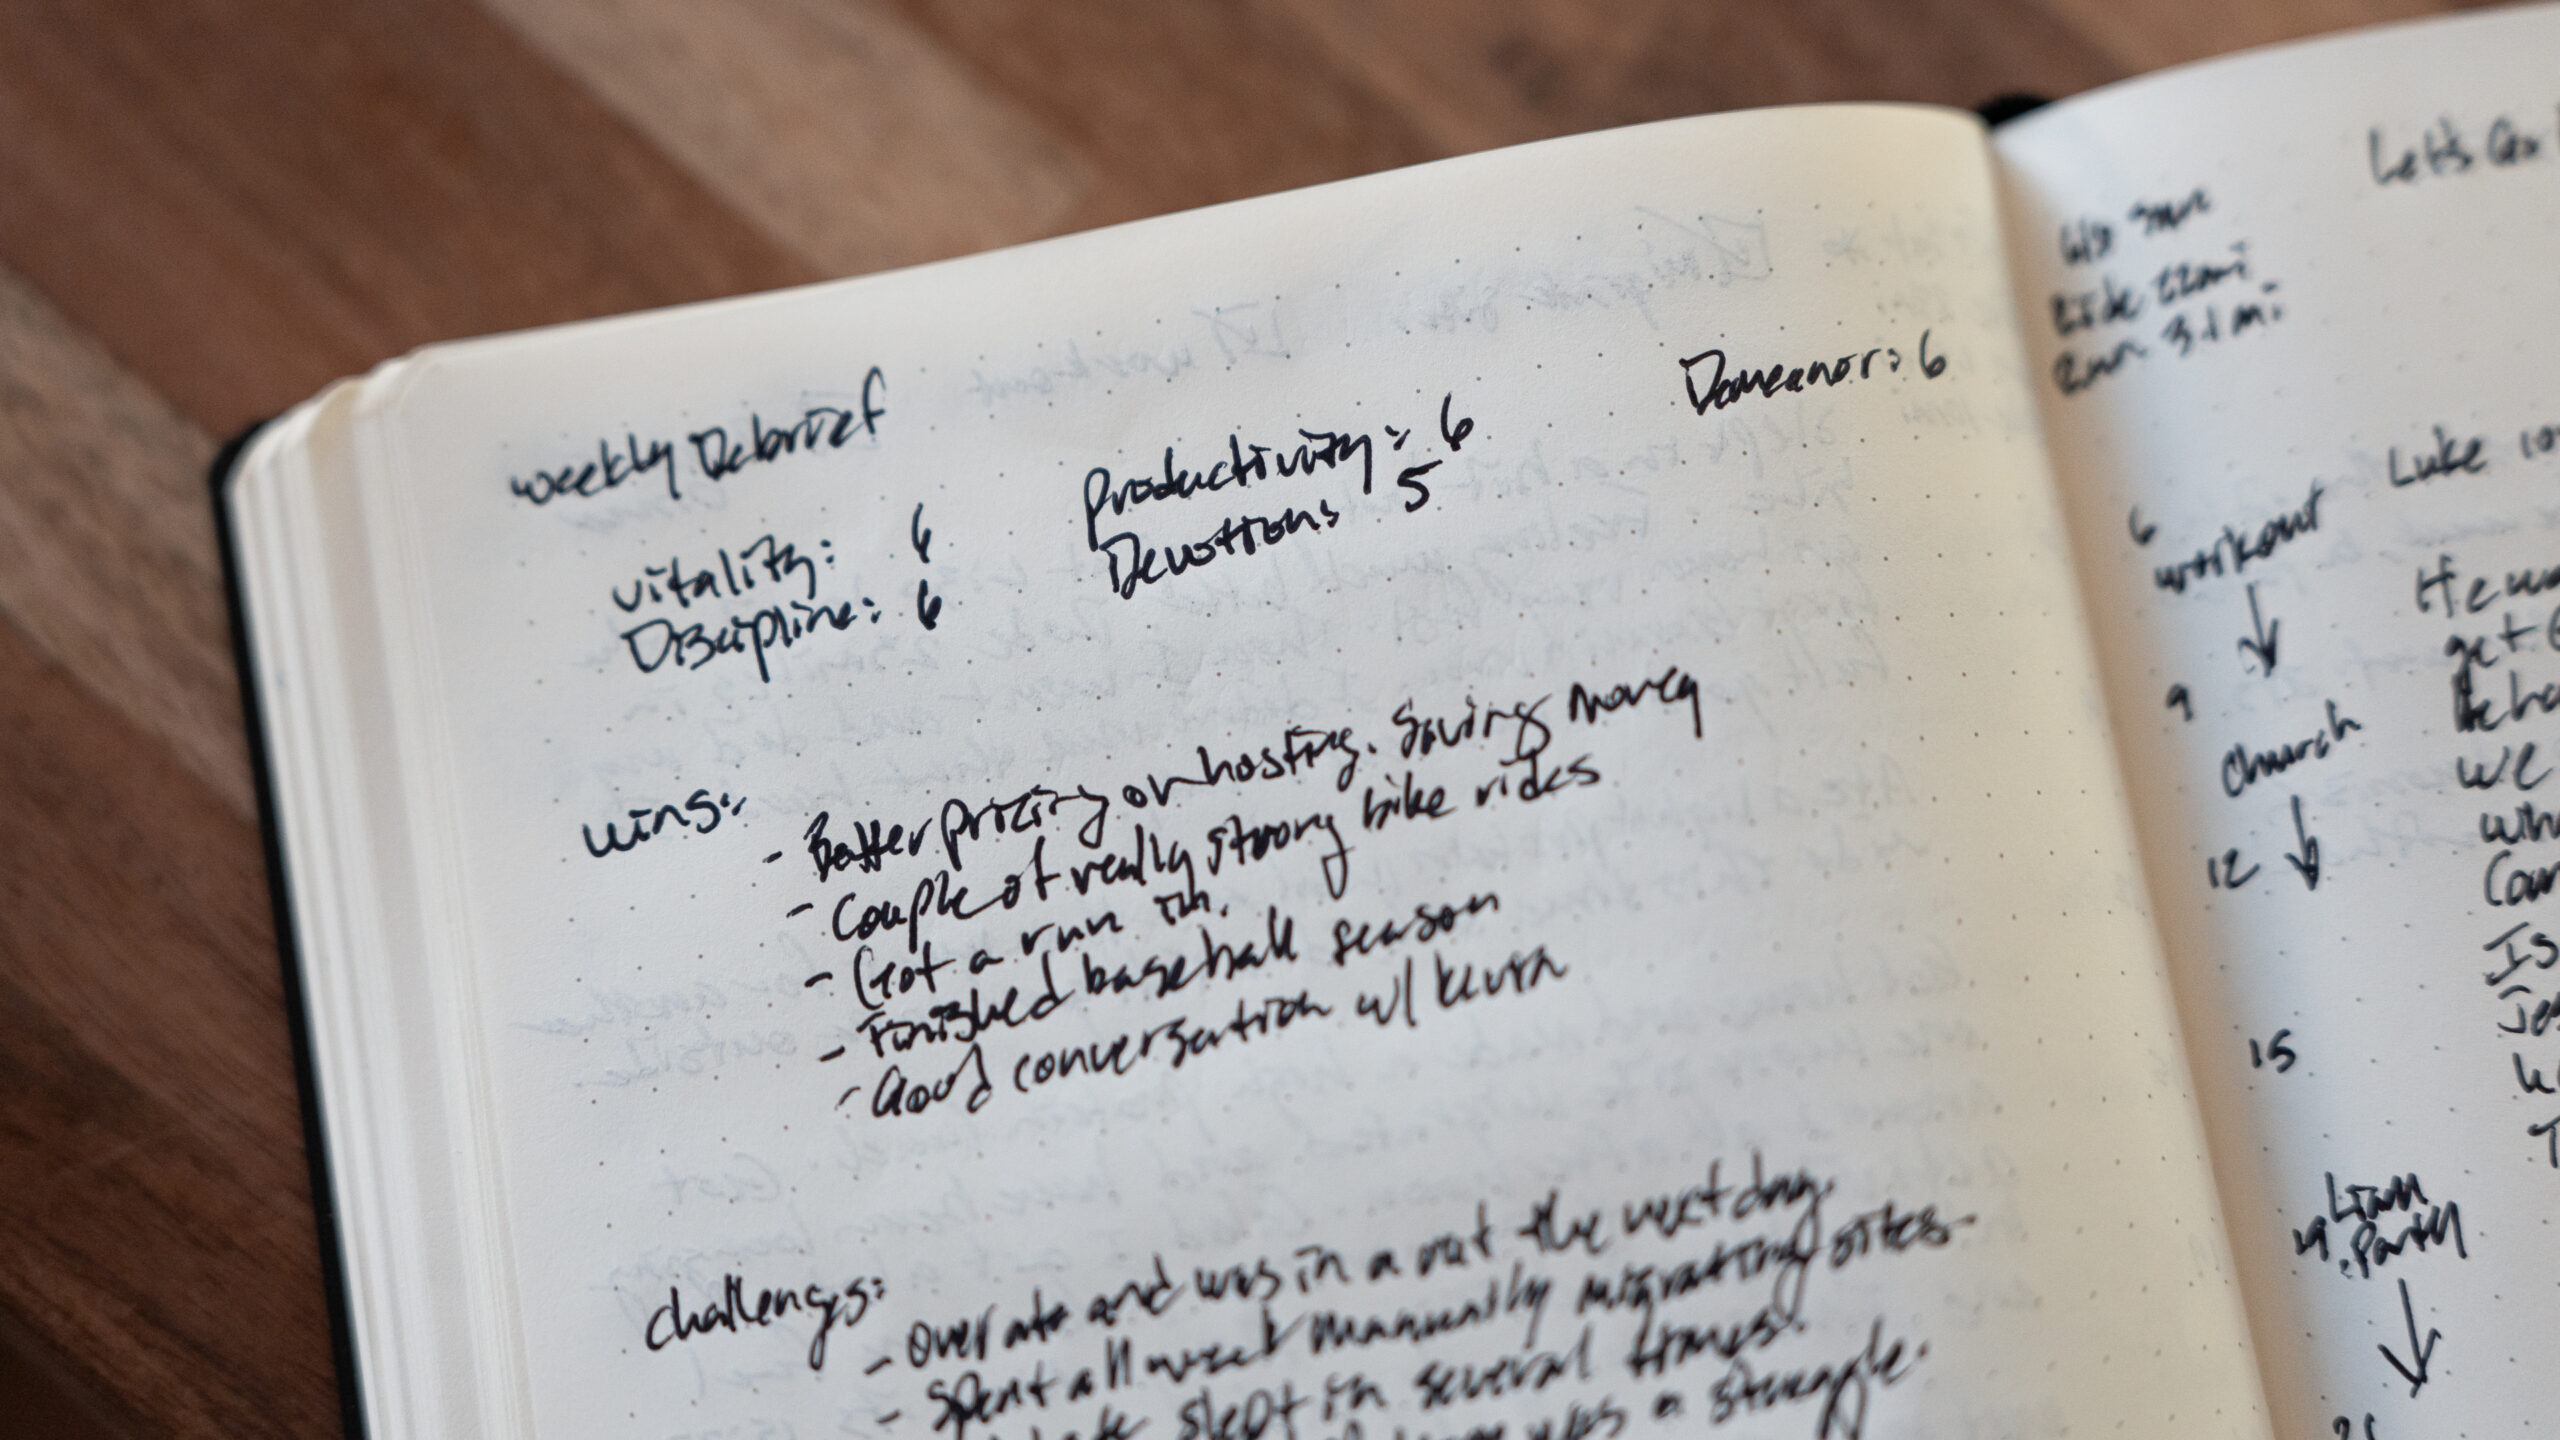 Weekly Debrief
Vitality: 6
Discipline: 6
Productivity: 6
Devotions 5
Demeanor: 6
Wins:
- Better pricing on hosting. Saving money
- Couple of really strong bike rides
- Got a run in.
- Finished baseball season
- Good conversation w/ Kevin
Challenges:
- Over ate and was in a rut the next day.
- Spent all week manually migrating sites
slept in several times.
was a struggle.
Let's Go
Ride 22mi
Run 3.1 mi
Luke
6
workout
9
church
12
15
Liam
Party
get
We
Is